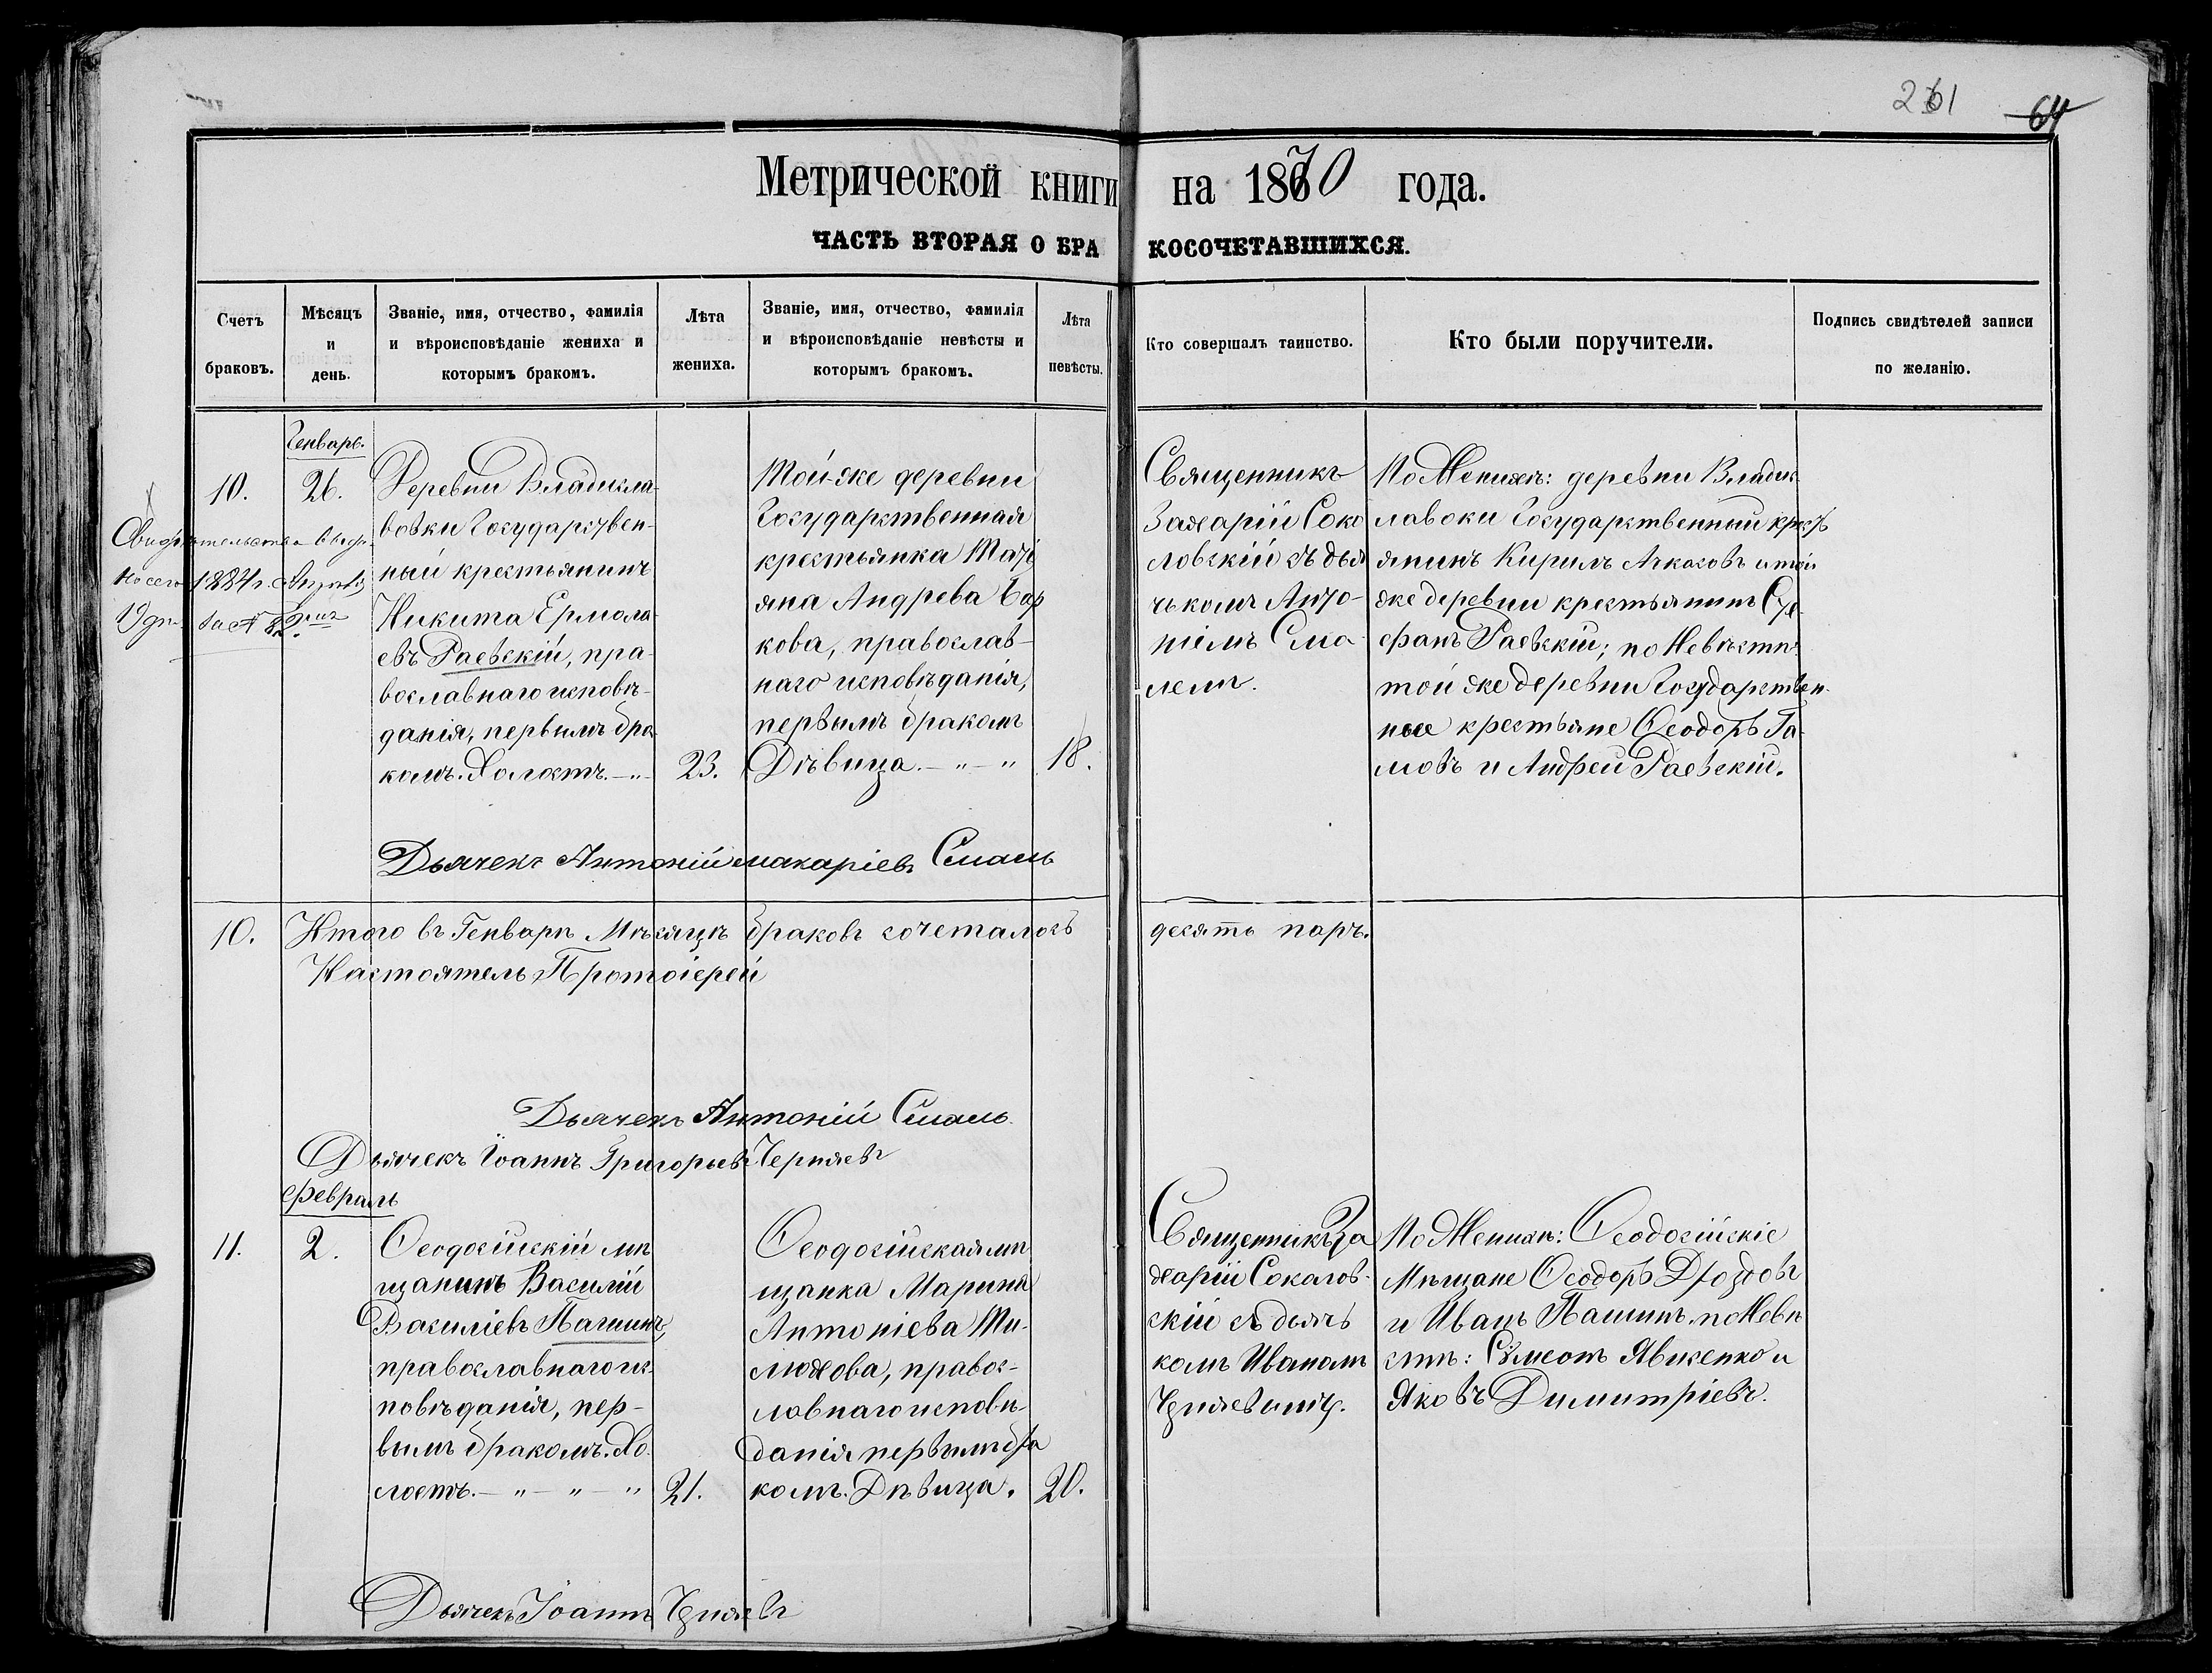 261 64
Метрической книги на 1870 года.
ЧАСТЬ ВТОРАЯ О БРАКОСОЧЕТАВШИХСЯ.
Счетъ
браковъ.
Мѣсяцъ
и
день.
Званіе, имя, отчество, фамилія
и вѣроисповѣданіе жениха и
которымъ бракомъ.
Лѣта
жениха.
Званіе, имя, отчество, фамилія
и вѣроисповѣданіе невѣсты и
которымъ бракомъ.
Лѣта
невѣсты.
Кто совершалъ таинство.
Кто были поручители.
Подпись свидѣтелей записи
по желанію.
Генварь.
10.
26.
Свидѣтельство
1884 г.
Деревни Владисла-
вовки Государствен-
ный крестьянинъ
Никита Ермола-
евъ Раевскій, пра-
вославнаго исповѣ-
данія, первымъ бра-
комъ. Холостъ. — „ —
23.
Той-же деревни
Государственная
крестьянка
Андрева
кова, православ-
наго исповѣданія,
первымъ бракомъ
Дѣвица. — „ — „
18.
Священникъ
Захарій Соко
ловскій съ дья
чькомъ Анто-
ніемъ Сма-
лемъ.
По Женихѣ: деревни Владис
лавоки Государственный крест
янинъ Кирилъ и той
же деревни крестьянинъ Сте-
фанъ Раевскій; по Невѣстѣ
той же деревни Государствен-
ные крестьяне Ѳеодоръ Га-
мовъ и Андрей Раевскій.
Дьячекъ Антоній Макаріевъ Смаль
10. Итого въ Генварѣ Мѣсяцѣ браковъ сочеталось десять паръ.
Настоятель Протоіерей
Дьячекъ Антоній Смаль.
Дьячекъ Іоаннъ Григорьевъ Черняевъ
Февраль
11.
2.
Ѳеодосійскій мѣ
щанинъ Василій
Василіевъ Пашинъ,
православнаго ис-
повѣданія, пер-
вымъ бракомъ. Хо-
лостъ. — „ — „ — „
21.
Ѳеодосійская мѣ
щанка Марина
Антоніева Ми-
люхова, правос-
лавнаго исповѣ-
данія первымъ бра
комъ. Дѣвица.
20.
Священникъ За
харій Соколов-
скій съ дьячь
комъ Иваномъ
По Женихѣ: Ѳеодосійскіе
Мѣщане Ѳеодоръ Дроздовъ
и Иванъ Пашинъ, по Невѣ
стѣ: Сѵмеонъ Явисенко и
Яковъ Димитріевъ.
Дьячекъ Іоаннъ Черняевъ